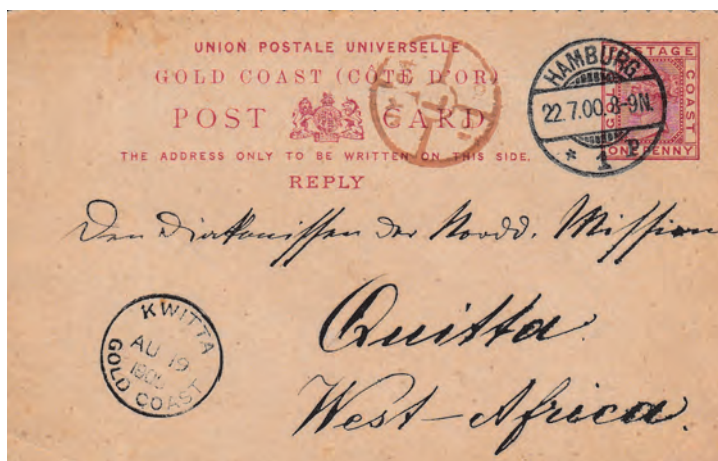 UNION POSTALE UNIVERSELLE
GOLD COAST (CÔTE D'OR)
POST CARD
THE ADDRESS ONLY TO BE WRITTEN ON THIS SIDE.
REPLY
HAMBURG
22.7.00.8-9N.
* 1
POSTAGE
GOLD COAST
ONE PENNY
Den Diakonissen der Nordd. Mission
Quitta
West-Africa.
KWITTA
AU 19
GOLD COAST